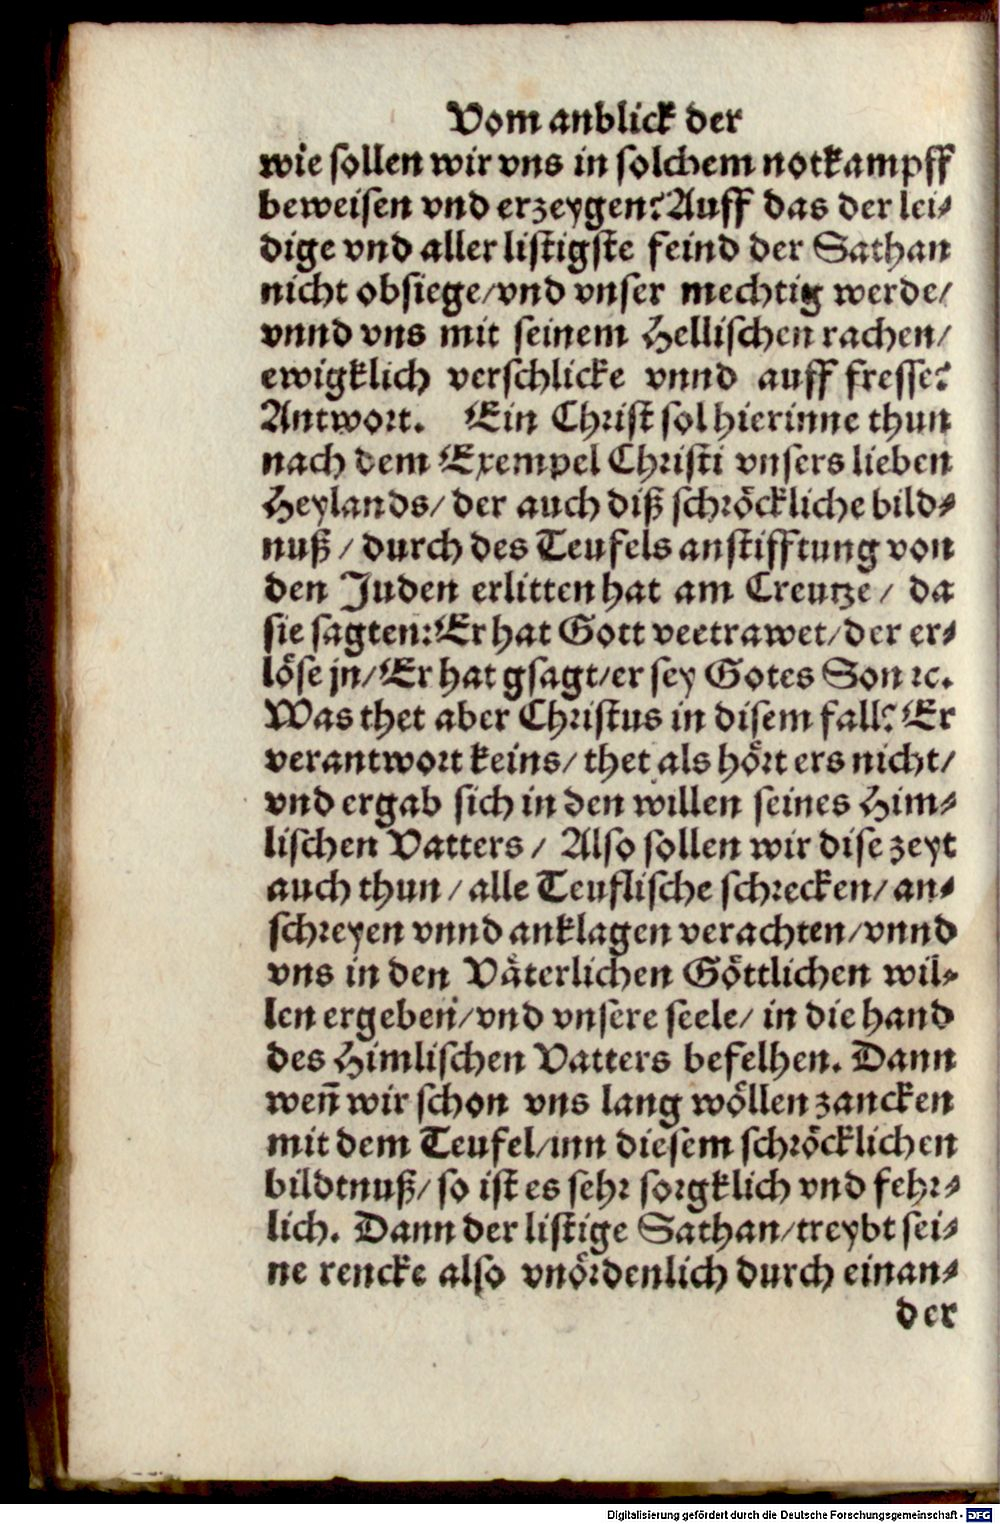 Vom anblick der
wie sollen wir vns in solchem notkampff
beweisen vnd erzeygen? Auff das der lei⸗
dige vnd aller listigste feind der Sathan
nicht obsiege/vnd vnser mechtig werde/
vnnd vns mit seinem Hellischen rachen/
ewigklich verschlicke vnnd auff fresse?
Antwort. Ein Christ sol hierinne thun
nach dem Exempel Christi vnsers lieben
Heylands/ der auch diß schröckliche bild⸗
nuß / durch des Teufels anstifftung von
den Juden erlitten hat am Creutze/ da
sie sagten: Er hat Gott veetrawet/der er⸗
löse jn/Er hat gsagt/er sey Gotes Son ꝛc.
Was thet aber Christus in disem fall? Er
verantwort keins/ thet als hört ers nicht/
vnd ergab sich in den willen seines Him⸗
lischen Vatters / Also sollen wir dise zeyt
auch thun / alle Teuflische schrecken/ an⸗
schreyen vnnd anklagen verachten/vnnd
vns in den Väterlichen Göttlichen wil⸗
len ergeben/vnd vnsere seele/ in die hand
des Himlischen Vatters befelhen. Dann
wen̄ wir schon vns lang wöllen zancken
mit dem Teufel/inn diesem schröcklichen
bildtnuß/ so ist es sehr sorgklich vnd fehr⸗
lich. Dann der listige Sathan/treybt sei⸗
ne rencke also vnördenlich durch einan⸗
der
Digitalisierung gefördert durch die Deutsche Forschungsgemeinschaft - DFG